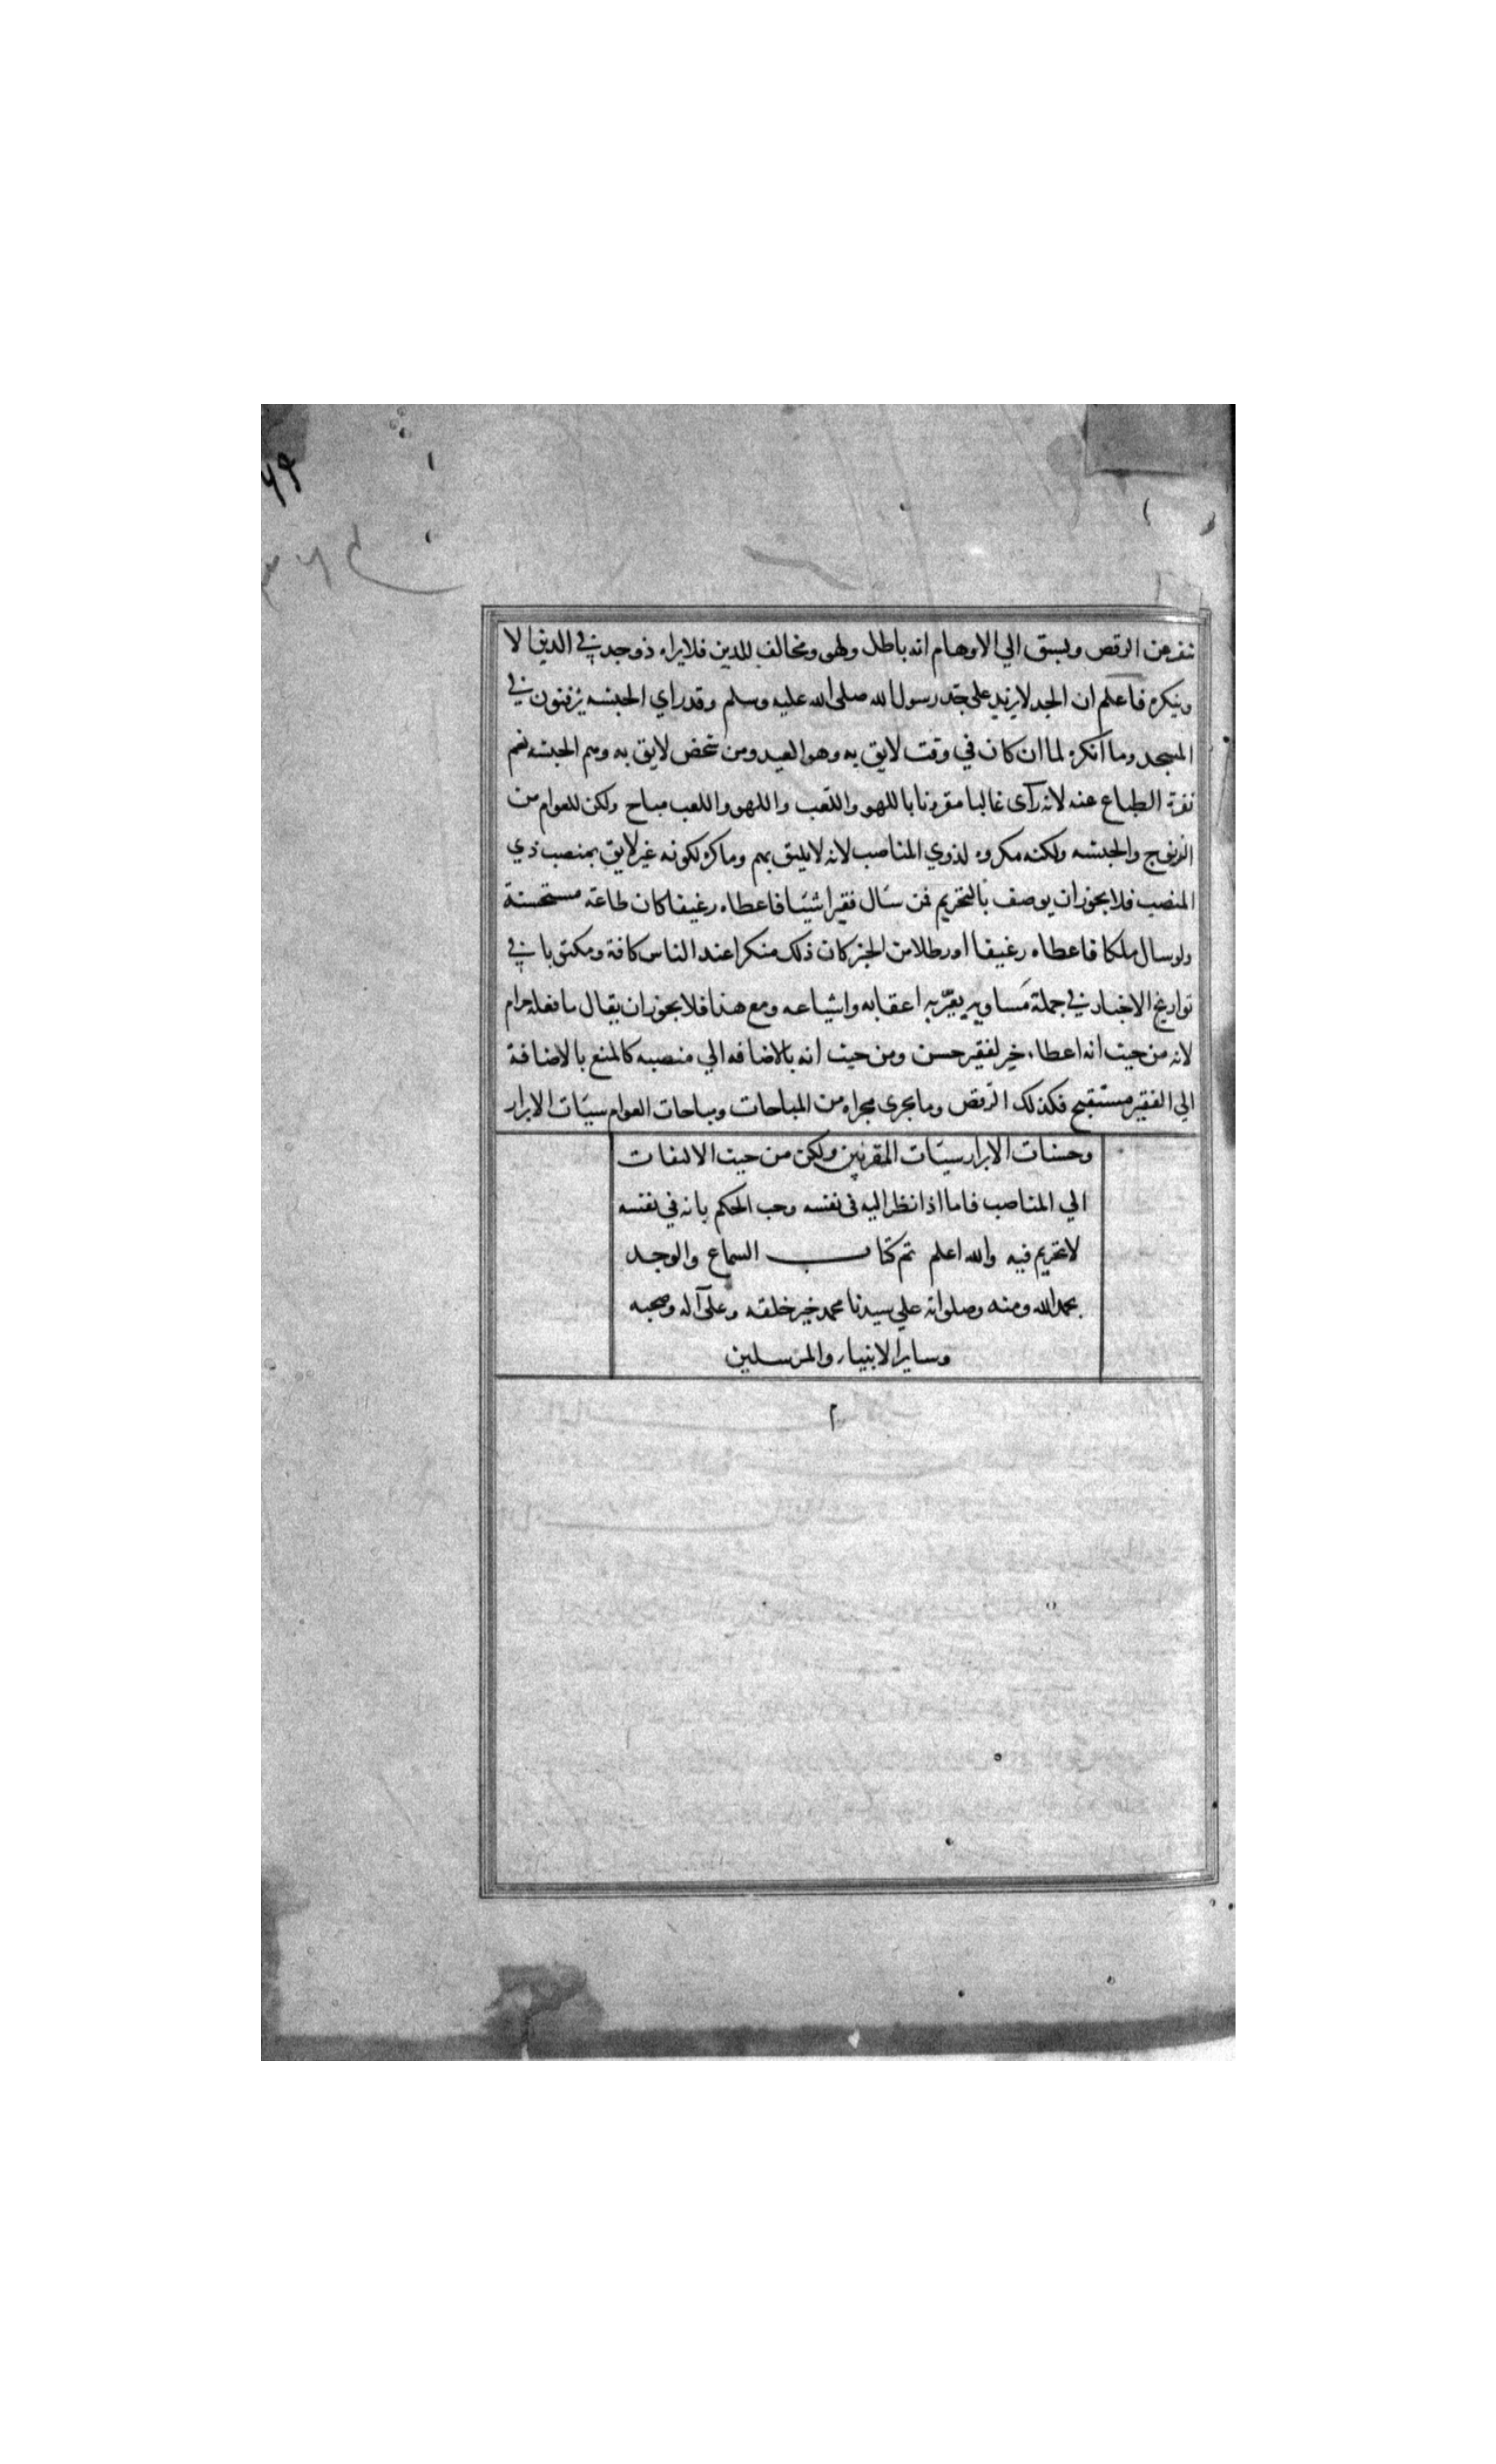 تنفر عن الرقص ويسبق الي الاوهام انه باطل ولهو ومخالف للدين فلا يراه ذو جد في الدين الا
وينكره فاعلم ان الجد لا يزيد علي جد رسول الله صلى الله عليه وسلم وقد راي الحبشه يزفنون في
المسجد وما انكره لما ان كان في وقت لايق به وهو العيد ومن شخص لايق به وهم الحبشه نعم
نفرة الطباع عنه لانه رآى غالبا مقرونا باللهو واللعب واللهو واللعب مباح ولكن للعوام من
الزنوج والحبشه ولكنه مكروه لذوي المناصب لانه لا يليق بهم وما كره لكونه غير لايق بمنصب ذي
المنصب فلا يجوز ان يوصف بالتحريم فمن سال فقيرا شيئا فاعطاه رغيفا كان طاعة مستحسنة
ولو سال ملكا فاعطاه رغيفا او رطلا من الخبز كان ذلك منكرا عند الناس كافة ومكتوبا في
تواريخ الاخبار في جملة مساويه يعيّر به اعقابه واشياعه ومع هذا فلا يجوز ان يقال ما فعله حرام
لانه من حيث انه اعطاء خبز لفقير حسن ومن حيث انه بالاضافه الي منصبه كالمنع بالاضافة
الي الفقير مستقبح فكذلك الرقص وما يجرى مجراه من المباحات ومباحات العوام سيئات الابرار
وحسنات الابرار سيئات المقربين ولكن من حيث الالتفات
الي المناصب فاما اذا نظر اليه فى نفسه وجب الحكم بانه في نفسه
لا تحريم فيه والله اعلم تم كتاب السماع والوجد
بحمد الله ومنه وصلواته علي سيدنا محمد خير خلقه وعلى آله وصحبه
وساير الانبياء والمرسلين
م